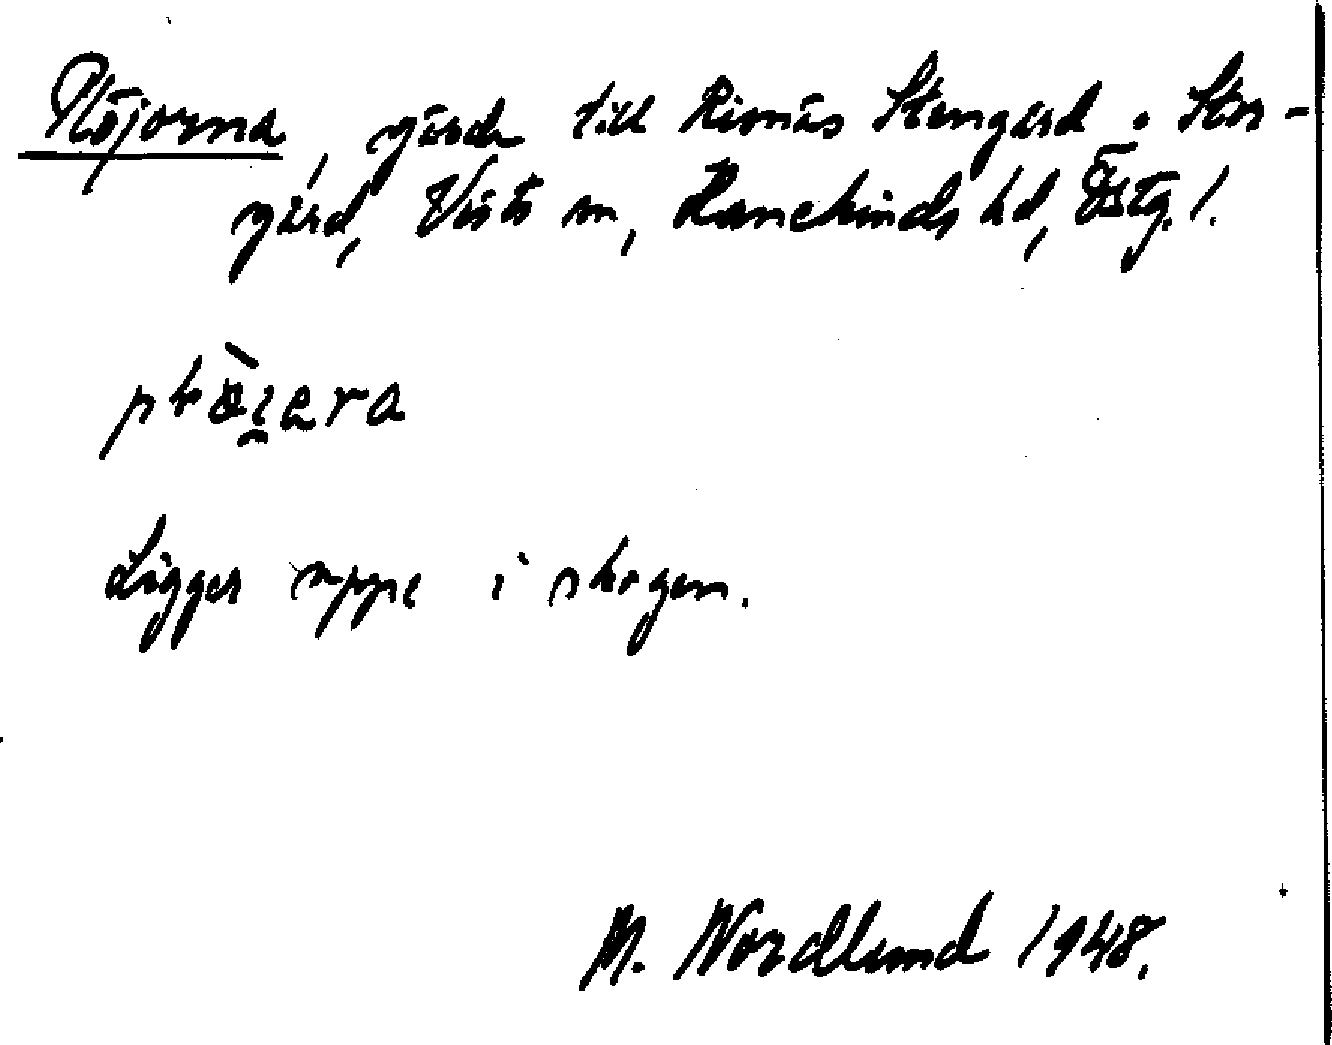 Plöjorna, gärde till Rimnäs Stengård o. Stor-
gård, Vists sn, Hanekinds hd, Östg. l.
Ligger uppe i skogen.
M. Nordlund 1948.